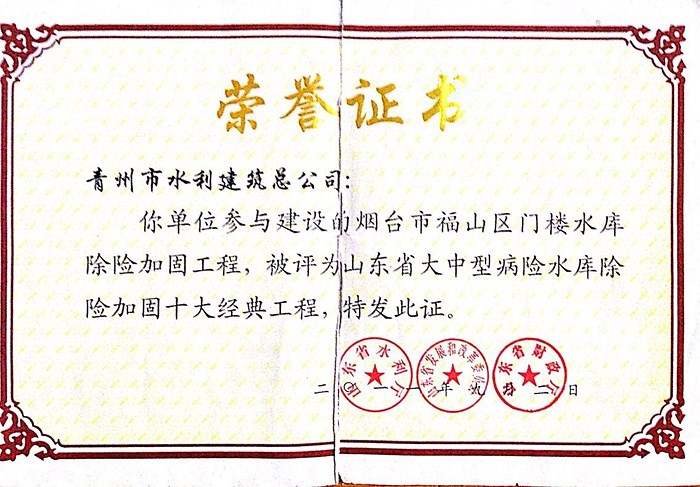 荣誉证书
青州市水利建筑总公司:
你单位参与建设的烟台市福山区门楼水库
除险加固工程，被评为山东省大中型病险水库除
险加固十大经典工程，特发此证。
山东省水利厅
山东省发展和改革委员会
山东省财政厅
二〇一一年九月二日